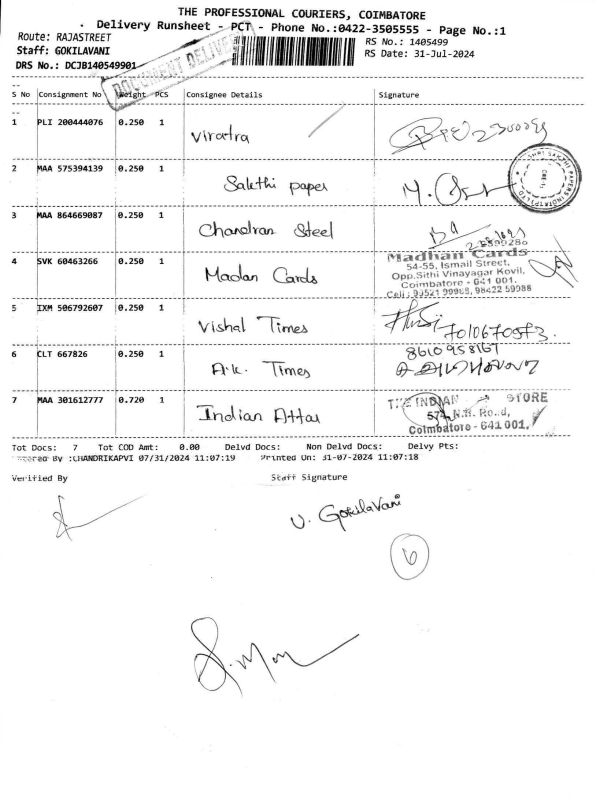 THE PROFESSIONAL COURIERS, COIMBATORE
Delivery Runsheet - PCT - Phone No.:0422-3505555 - Page No.:1
Route: RAJASTREET
RS No.: 1405499
Staff: GOKILAVANI
RS Date: 31-Jul-2024
DRS No.: DCJB140549901
DOCUMENT DELIVE
S No Consignment No Weight PCS Consignee Details Signature
1 PLI 200444076 0.250 1 Viratra
2 MAA 575394139 0.250 1 Sakthi paper M.
SHRI SAKTHI PAPERS INDIA (P) LTD
3 MAA 864669087 0.250 1 Chandran Steel
4 SVK 60463266 0.250 1 Madan Cards
Madhan Cards
54-55, Ismail Street,
Opp.Sithi Vinayagar Kovil,
Coimbatore - 641 001.
Cell : 99521 99988, 98422 59988
5 IXM 506792607 0.250 1 Vishal Times
6 CLT 667826 0.250 1 A.K. Times
8610958167
7 MAA 301612777 0.720 1 Indian Attar
THE INDIAN STORE
N.H. Road,
Coimbatore - 641 001.
Tot Docs: 7 Tot COD Amt: 0.00 Delvd Docs: Non Delvd Docs: Delvy Pts:
By :CHANDRIKAPVI 07/31/2024 11:07:19 Printed On: 31-07-2024 11:07:18
Verified By Staff Signature
V. Gokilavani
6